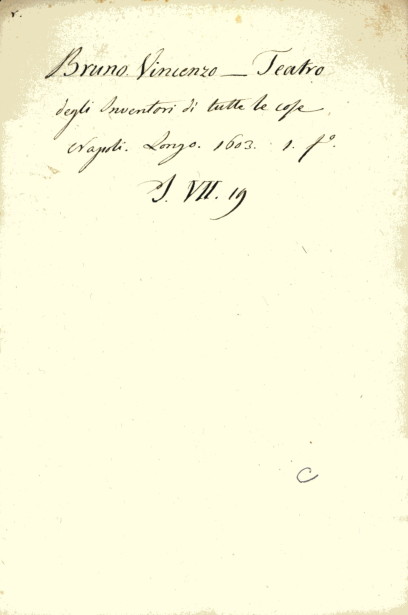 r.
Bruno Vincenzo — Teatro
degli Inventori di tutte le cose
Napoli. Longo. 1603. 1. fº.
J. VII. 19
C